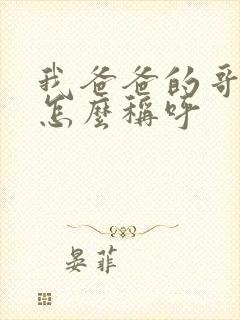 我爸爸的哥
怎麼稱呼
晏菲